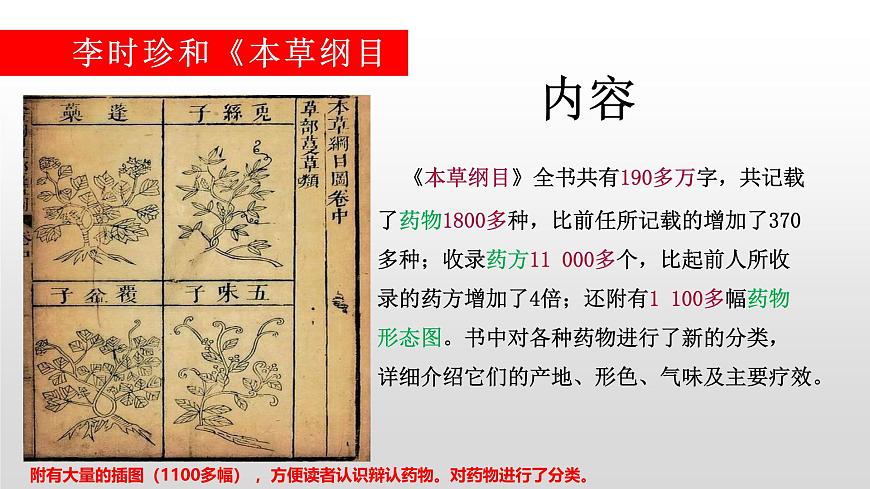 李时珍和《本草纲目
内容
《本草纲目》全书共有190多万字，共记载
了药物1800多种，比前任所记载的增加了370
多种；收录药方11 000多个，比起前人所收
录的药方增加了4倍；还附有1 100多幅药物
形态图。书中对各种药物进行了新的分类，
详细介绍它们的产地、形色、气味及主要疗效。
本草綱目圖卷中
草部蔓草類
兎絲子
蓬蘽
五味子
覆盆子
附有大量的插图（1100多幅），方便读者认识辩认药物。对药物进行了分类。